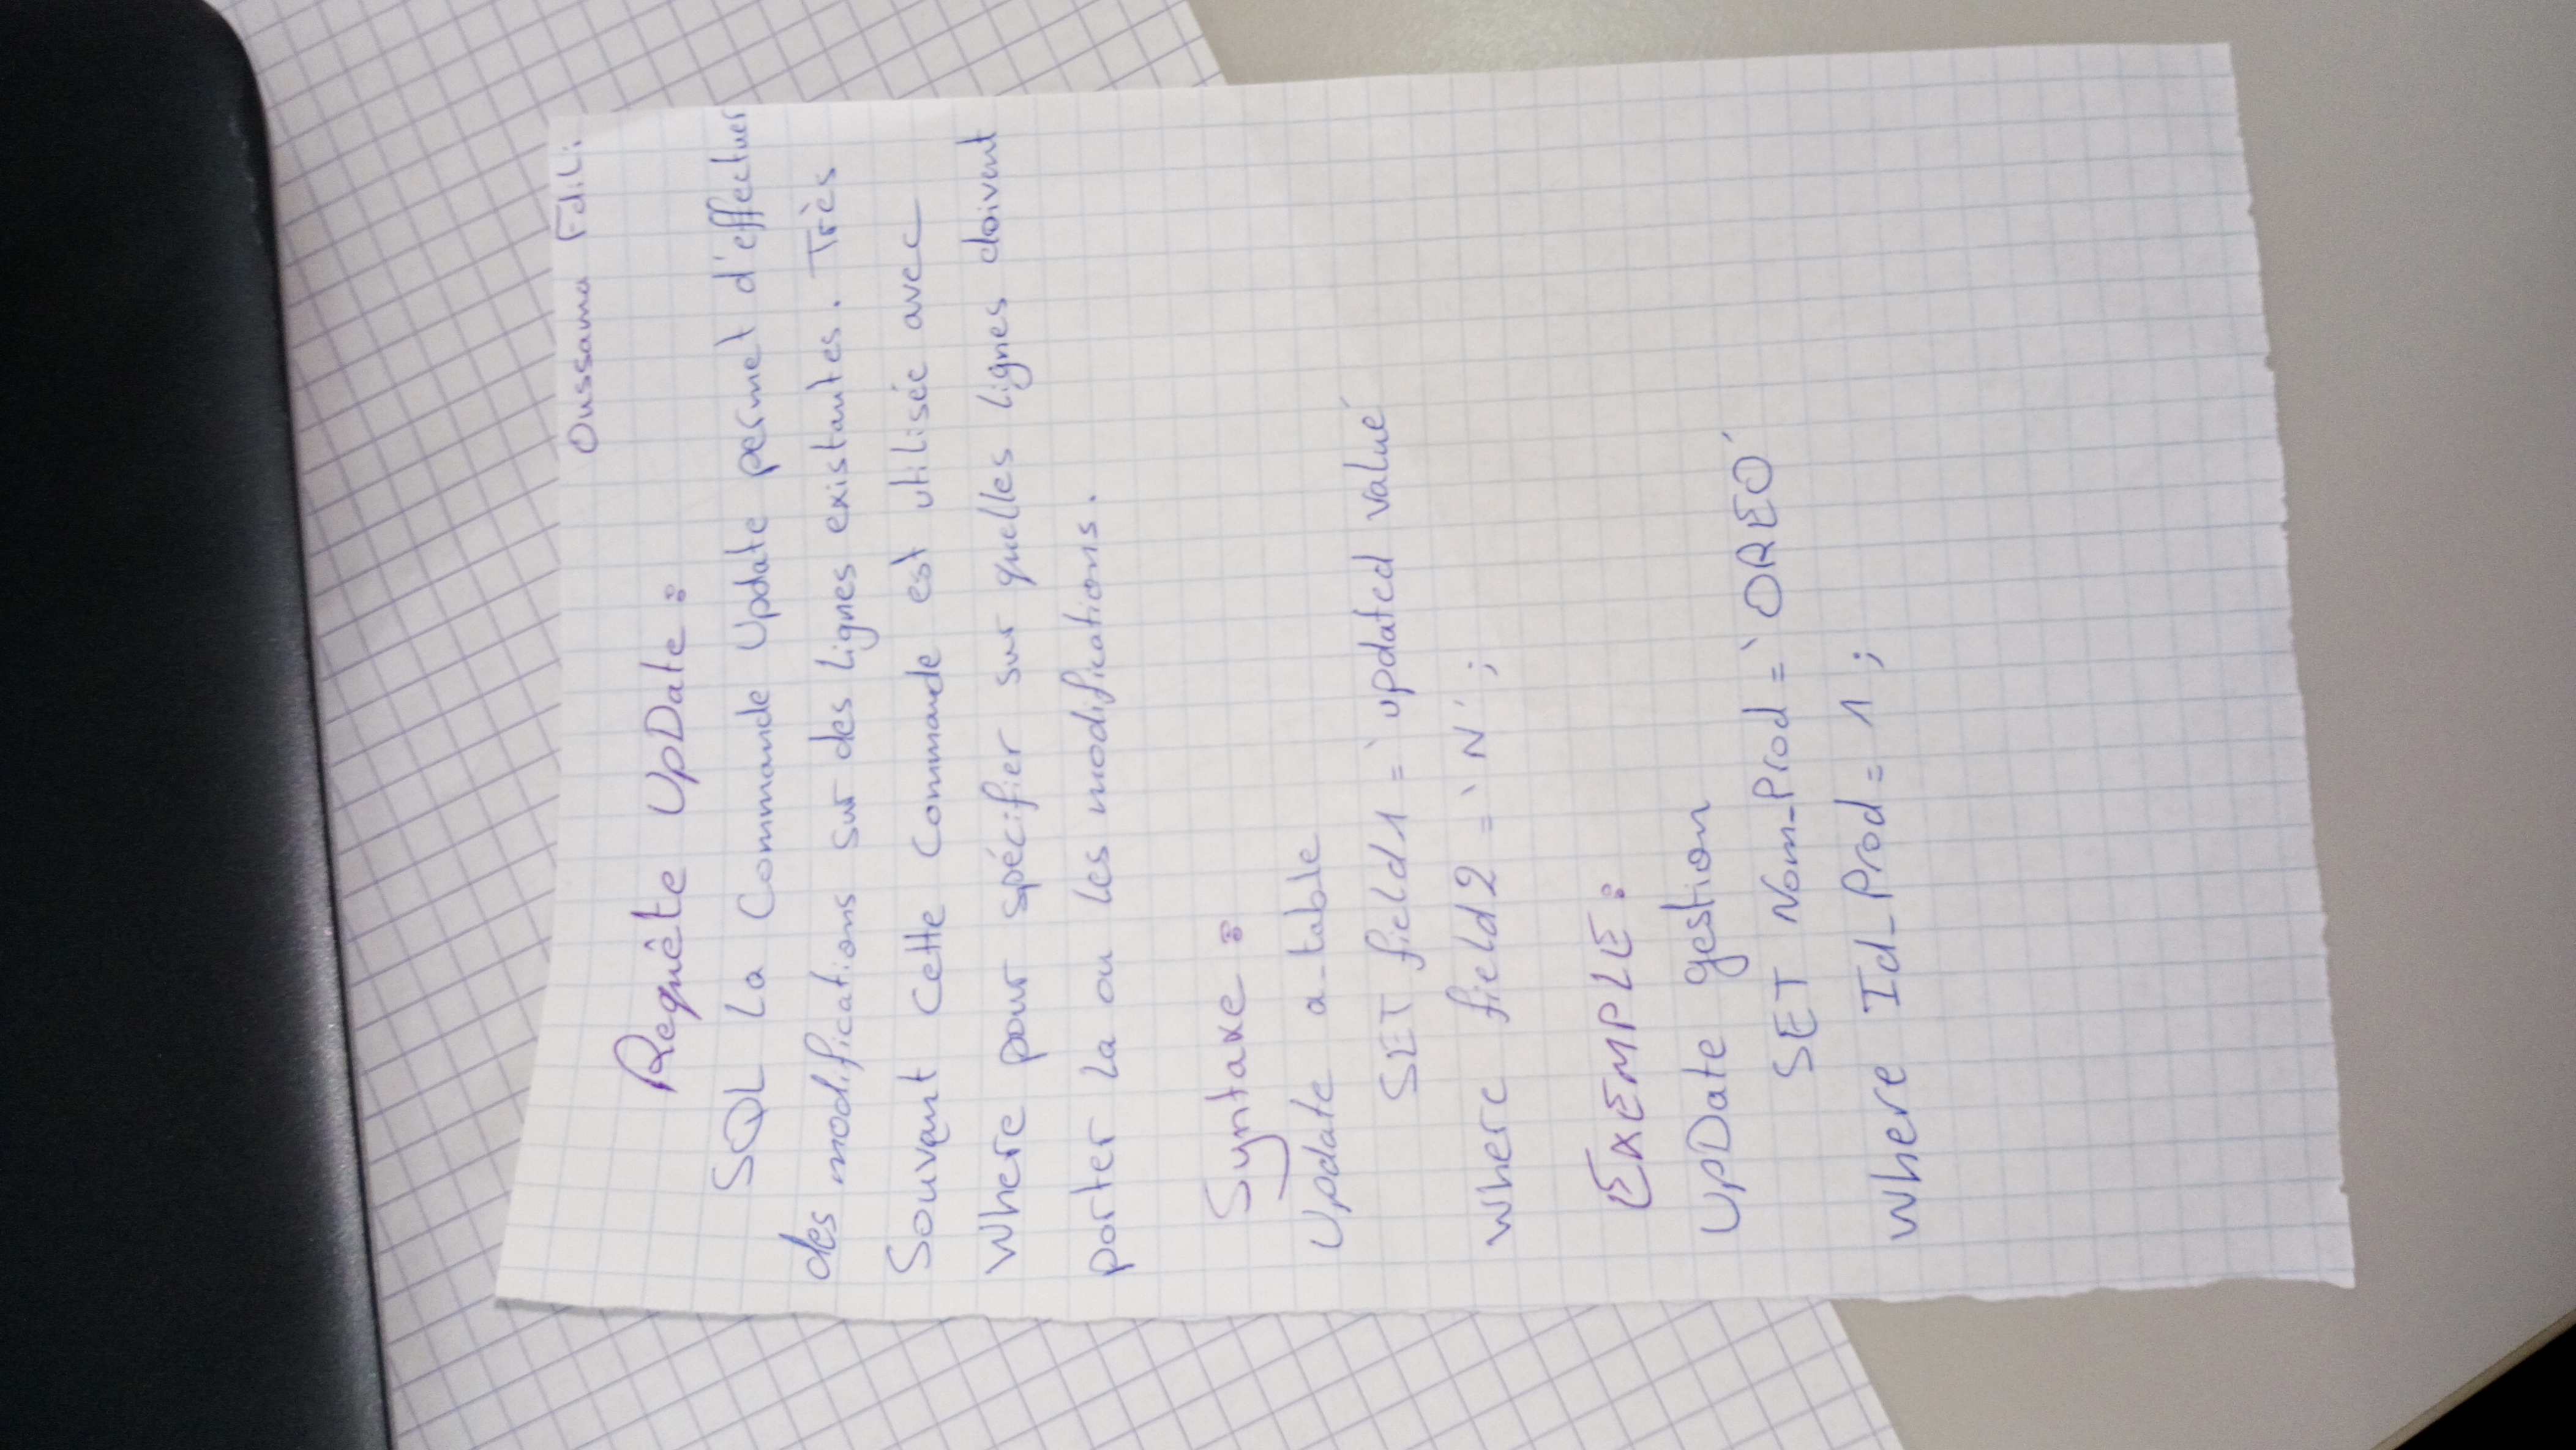 Oussama Fdili
Requête UpDate :
SQL La Commande Update permet d'effectuer
des modifications sur des lignes existantes. Très
Souvent cette commande est utilisée avec
Where pour spécifier sur quelles lignes doivent
porter la ou les modifications.
Syntaxe :
Update a_table
SET field1 = 'updated value'
Where field2 = 'N' ;
EXEMPLE :
UpDate gestion
SET Nom_Prod = 'OREO'
Where Id_Prod = 1 ;